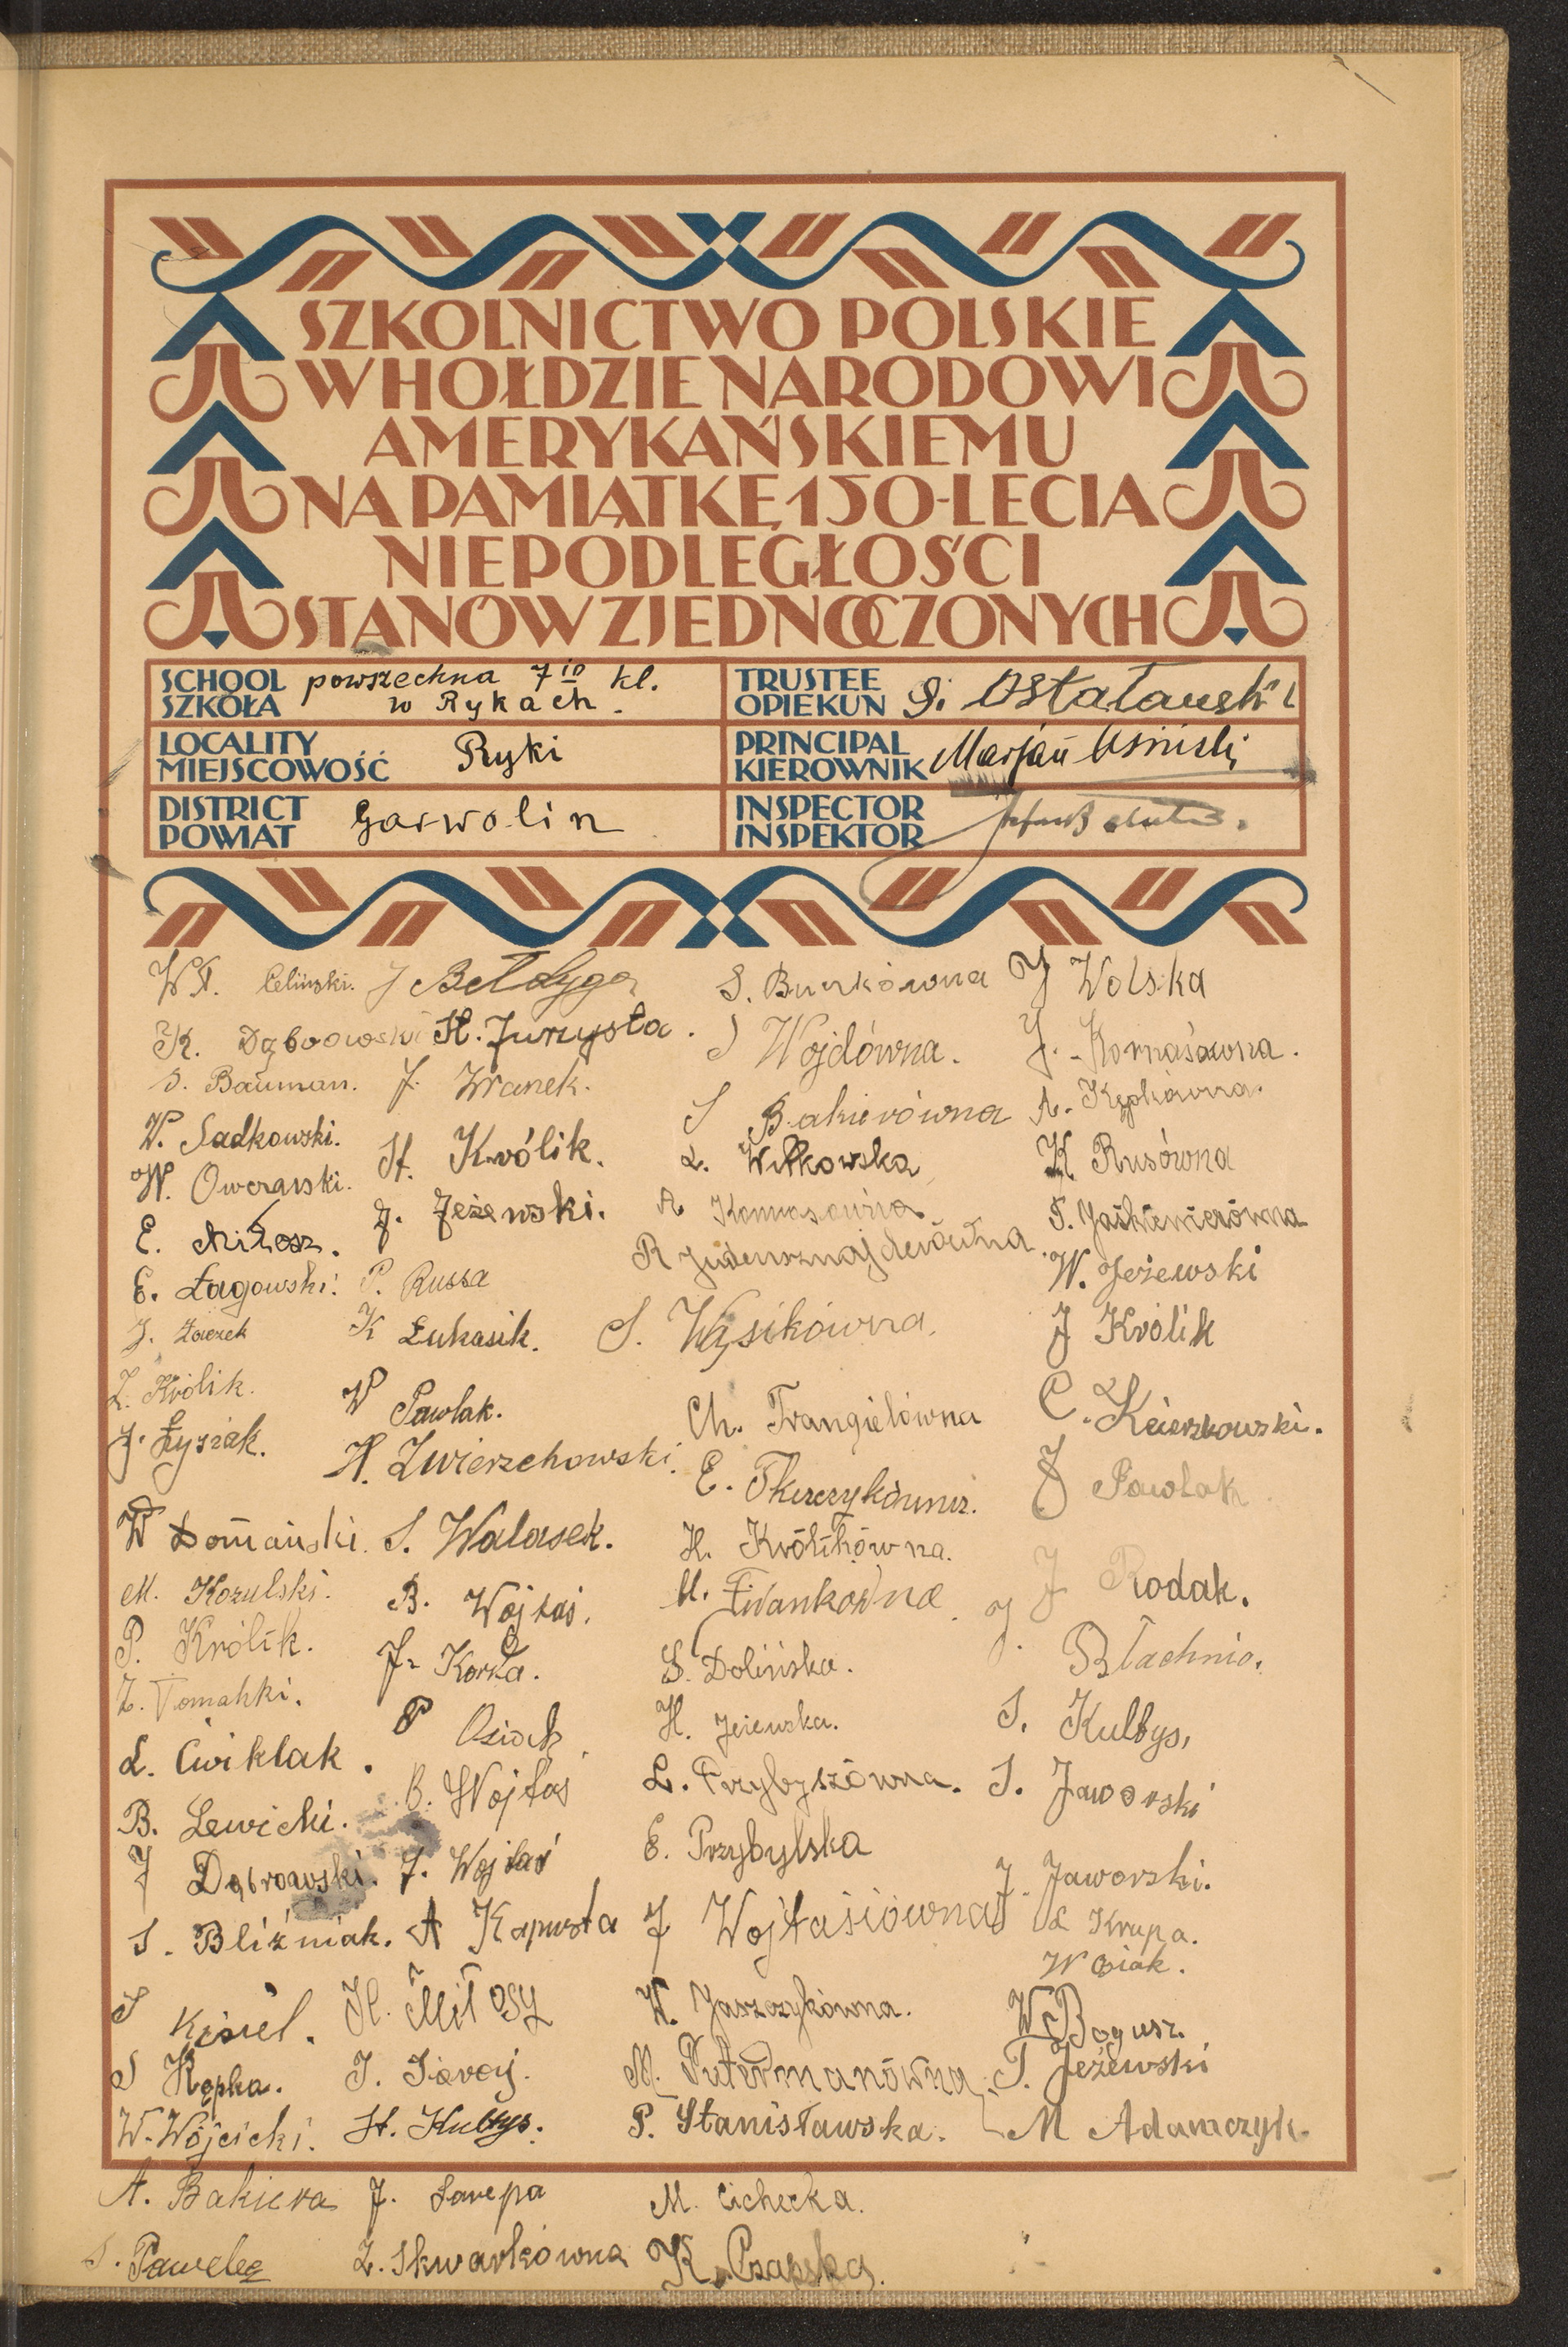 SZKOLNICTWO POLSKIE
W HOŁDZIE NARODOWI
AMERYKAŃSKIEMU
NA PAMIĄTKĘ 150-LECIA
NIEPODLEGŁOŚCI
STANÓW ZJEDNOCZONYCH
SCHOOL
SZKOŁA
powszechna 7 io kl.
w Rykach.
TRUSTEE
OPIEKUN
LOCALITY
MIEJSCOWOŚĆ
Ryki
PRINCIPAL
KIEROWNIK
Marjan
DISTRICT
POWIAT
Garwolin
INSPECTOR
INSPEKTOR
Celiński.
K. Dąbrowski
S. Bauman.
W. Sadkowski.
W. Owczarski.
E. Miłosz.
E. Łagowski.
J. Żaczek
Z. Królik.
J. Łysiak.
W Domański.
M. Kozulski.
P. Królik.
Z. Tomahki.
L. Ćwiklak.
B. Lewicki.
J Dąbrowski.
S. Bliźniak.
S Kisiel.
S Kępka.
W. Wójcicki.
A. Bakiera
S. Pawelec
J Bełdyga
H. Jurzysta.
J. Wranek.
St. Królik.
J. Jeżewski.
P. Russa
K Łukasik.
W Pawlak.
H. Zwierzchowski.
S. Walasek.
B. Wojtaś.
J. Korla.
P Osiak
B. Wojtaś
J. Wojtaś
A Kapusta
H. Miłosz
St. Kulbys.
J. Sarepa
Z. Skwarkówna
S. Burkówna
S Wojdówna.
S Bakierówna
L. Witkowska
A Komosówna
R Judensznajderówna.
S. Wąsikówna.
Ch. Frangielówna
E. Tkaczykówna.
H. Królikówna.
M. Iwankówna.
S. Dolińska.
H. Jeżewska.
L. Przybyszówna.
E. Przybylska
J Wojtasiówna
W. Jaszczykówna.
M. Putermanówna.
P. Stanisławska.
M. Cichecka.
K. Czapska.
J Wolska
J. Komosówna.
A. Kępkówna.
K Rusówna
T. Jaśkiewiczówna
W. Jeżewski
J Królik
C. Kcierzkowski.
J Pawlak
J Rodak.
J. Błachnio.
S. Kulbys,
S. Jaworski
J. Jaworski.
L Krupa.
W Osiak.
W. Bogusz.
T. Jeżewski
M Adamczyk.